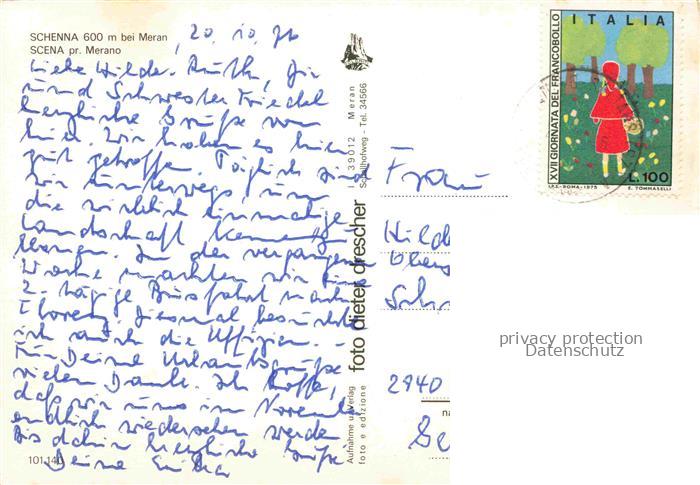 SCHENNA 600 m bei Meran
SCENA pr. Merano
20. 10. 76
Liebe Hilde-Ruth, Dir
und Schwester Friedel
herzliche Grüße von
hier. Wir haben es hier
gut getroffen. Täglich sind
wir unterwegs, um
die wirklich einmalige
Landschaft kennenzu-
lernen. In der vergangenen
Woche machten wir eine
2-tägige Busfahrt nach
Florenz. Diesmal besuchte
ich auch die Uffizien. –
Für Deine Urlaubsgrüße
vielen Dank. Ich hoffe,
daß wir uns im November
endlich wiedersehen werden
Bis dahin herzliche Grüße
Deine
101.140
Aufnahme u. Verlag
foto e edizione
foto dieter drescher
I - 39012 Meran
Schallhofweg - Tel. 34566
Frau
Hilde
2940
XVII GIORNATA DEL FRANCOBOLLO
ITALIA
L.100
I.P.S.-ROMA-1975
E. TOMMASELLI
privacy protection
Datenschutz